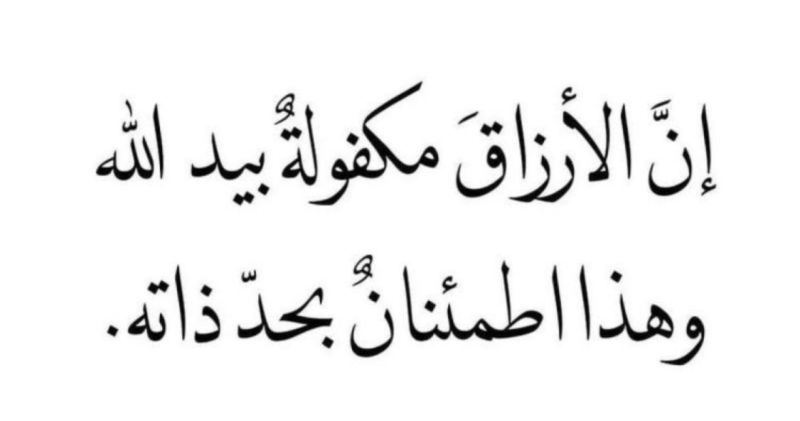 إنَّ الأرزاقَ مكفولةٌ بيد الله
وهذا اطمئنانٌ بحدّ ذاته.